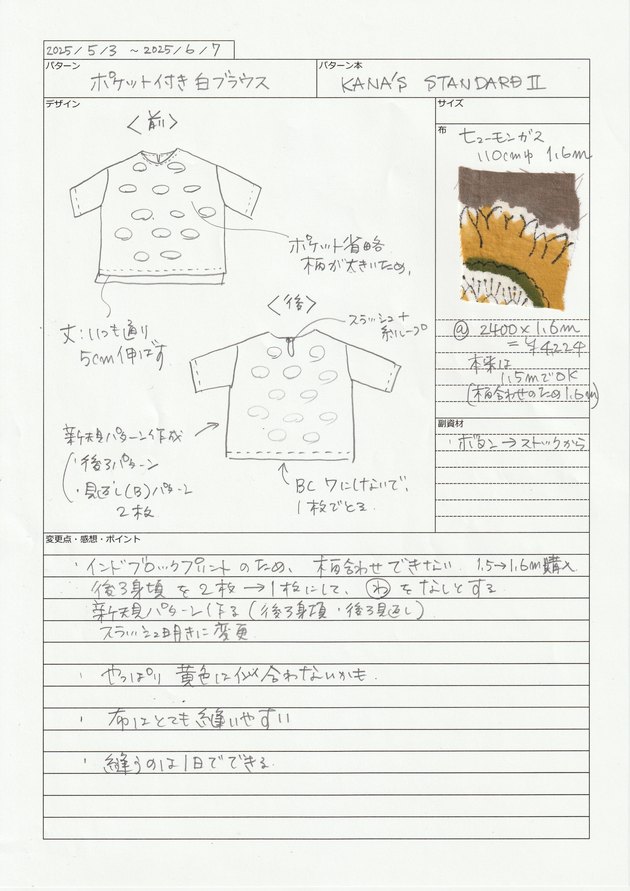 2025/5/3 ~2025/6/7
パターン
ポケット付き白ブラウス
パターン本
KANA'S STANDARD II
デザイン
<前>
ポケット省略
柄が大きいため、
丈:いつも通り
5cm伸ばす
<後>
スラッシュ+
糸ループ
新規パターン作成
・後ろパターン
・見返し(B)パターン
2枚
BC ワにしないで、
1枚でとる
サイズ
布
ヒューモンガス
110cm巾 1.6m
@ 2400×1.6m
=¥4224
本来は
1.5mでOK
(柄合わせのため1.6m)
副資材
・ボタン→ストックから
変更点・感想・ポイント
・インドブロックプリントのため、柄合わせできない 1.5→1.6m購入
後ろ身頃を2枚→1枚にして、わをなしとする
新規パターン作る(後ろ身頃・後ろ見返し)
スラッシュ明きに変更
・やっぱり黄色は似合わないかも.
・布はとても縫いやすい
・縫うのは1日でできる.